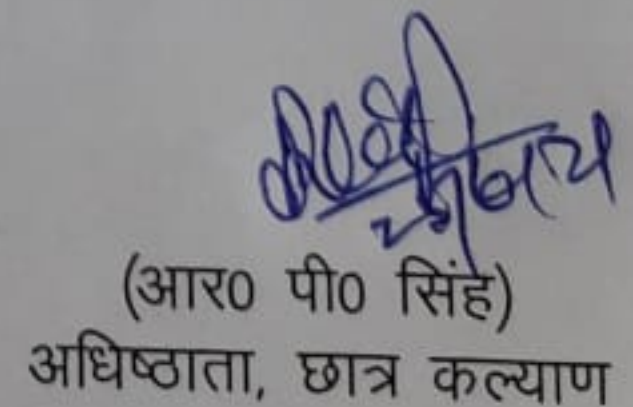 (आर0 पी0 सिंह)
अधिष्ठाता, छात्र कल्याण